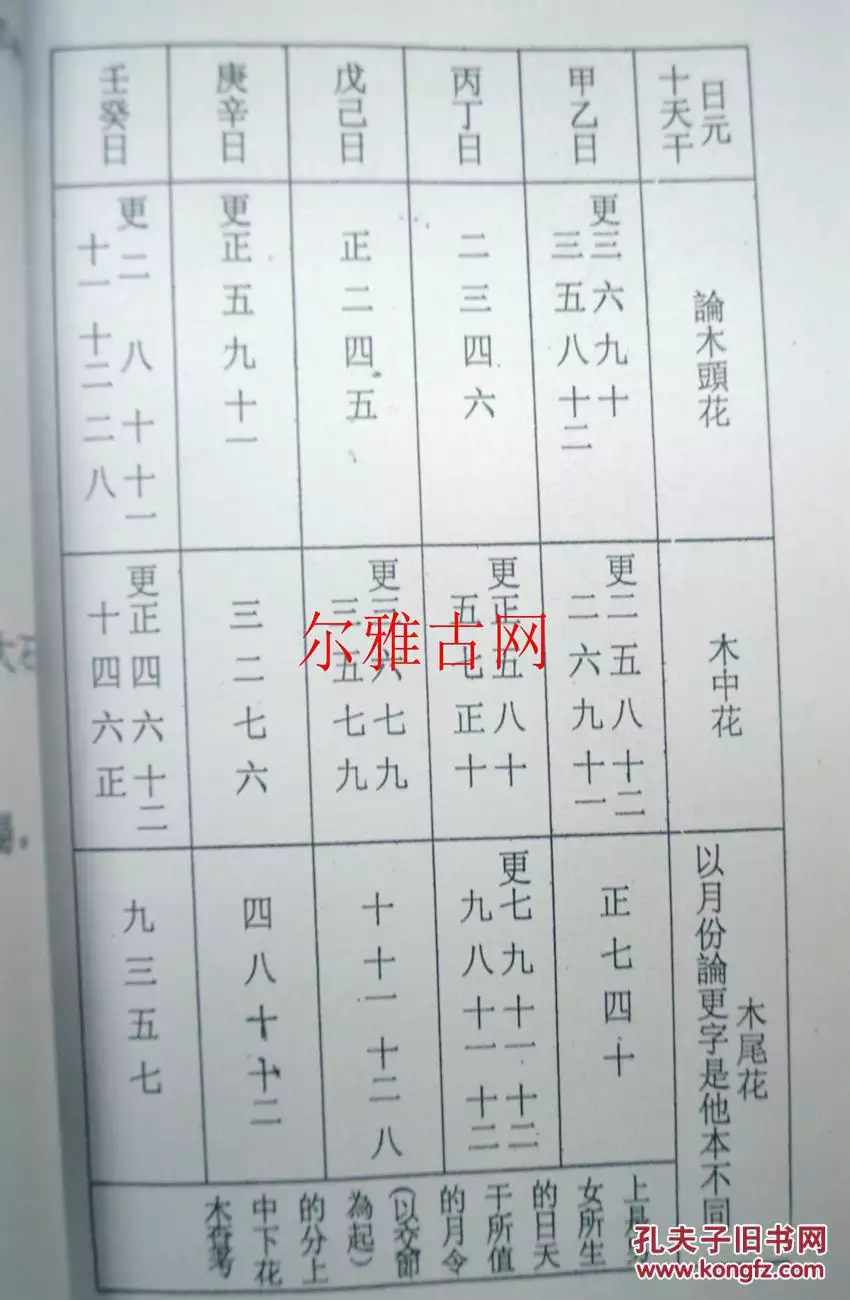 日元
十天干
論木頭花
木中花
木尾花
以月份論更字是他本不同
甲乙日
更三六九十
三五八十二
更二五八十二
二六九十一
正七四十
丙丁日
二三四六
更正五八十
五七正十
更七九十一十二
九八十一十二
戊己日
正二四五
更三六七九
三五七九
十十一十二八
庚辛日
更正五九十一
三二七六
四八十十二
壬癸日
更二八十十一
十一十二二八
更正四六十二
十四六正
九三五七
上是
女所生
的日天
干所值
的月令
(以交節
為起)
的分上
中下花
木
尔雅古网
孔夫子旧书网
www.kongfz.com